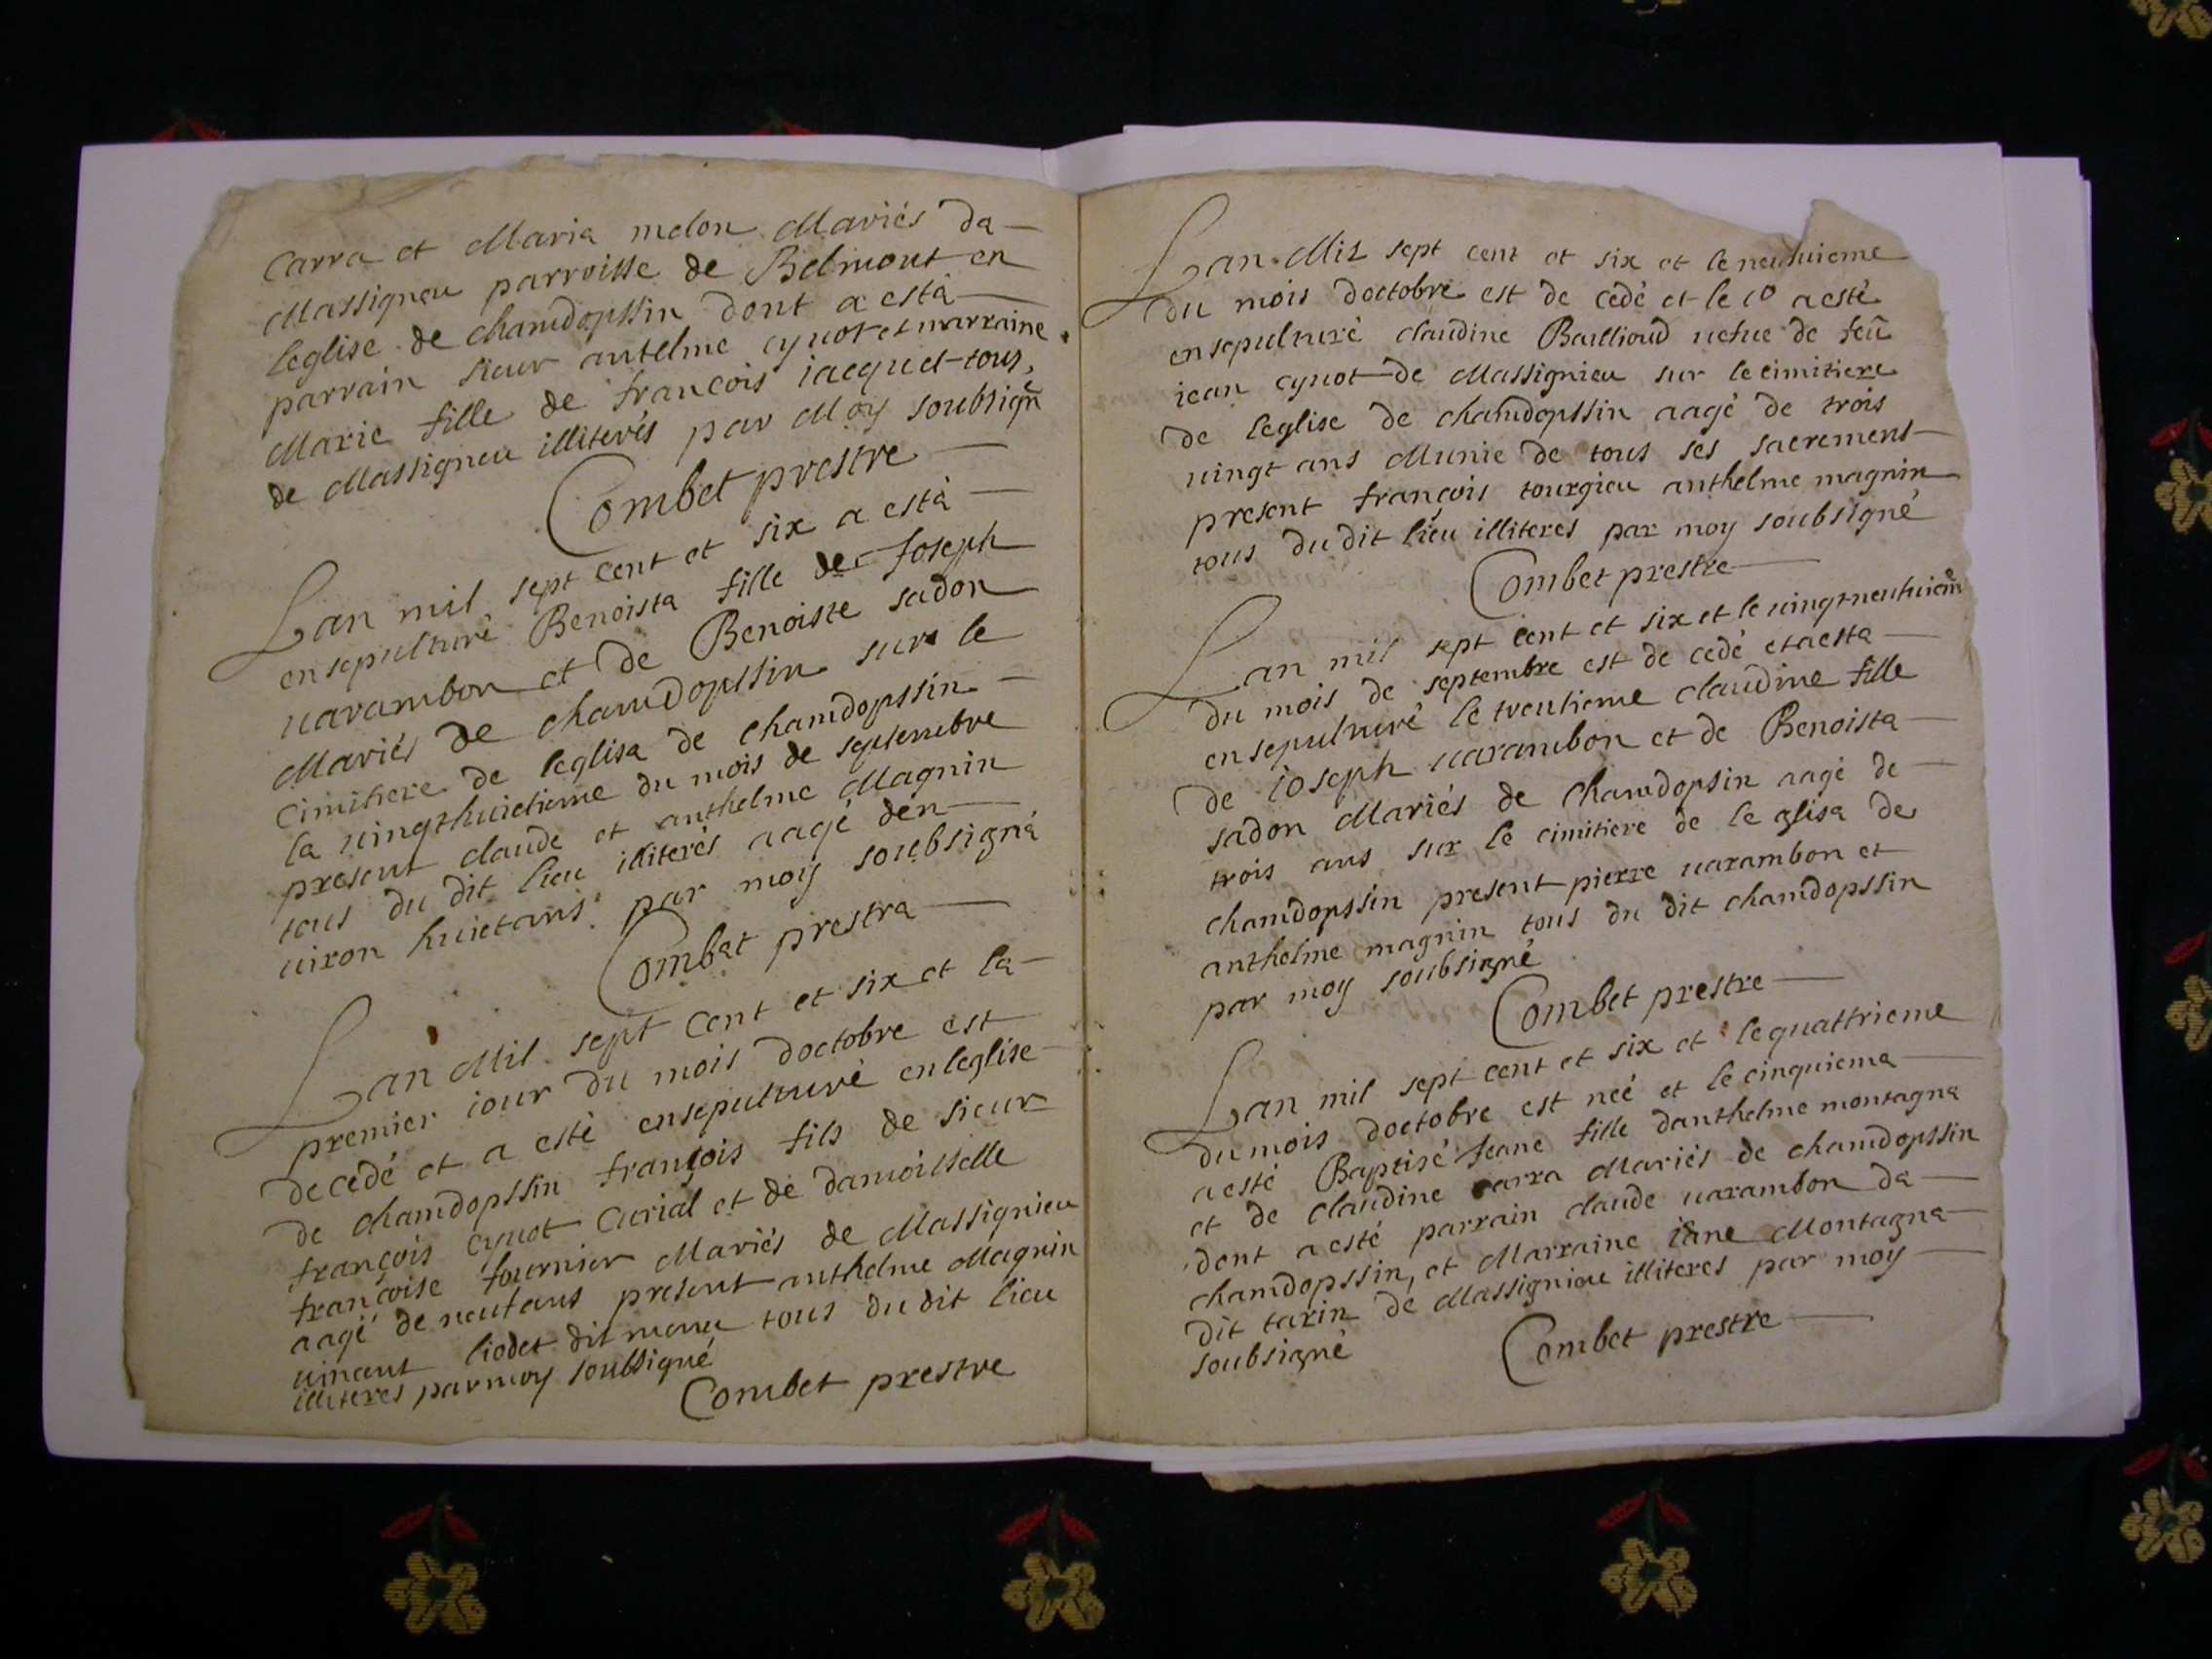 Carra et Maria melon Mariés da
Massigneu parroisse de Belmont en
leglise de chamdopssin dont a esta
parrain sieur antelme cynot et marraine
Marie fille de francois iacquet tous
de Massigneu illiterés par Moy soubsigñ
Combet prestre
Lan mil sept cent et six a esta
ensepulturé Benoista fille de Joseph
uarambon et de Benoiste sadon
Mariés de chamdopssin sur le
cimitiere de leglisa de chamdopssin
la uingthuictieme du mois de septembre
present claude et anthelme Magnin
tous du dit lieu illiterés aagé den
uiron huictans par moy soubsigná
Combet prestra
Lan Mil sept cent et six et la
premier iour du mois doctobre est
decedé et a esté ensepulturé en leglise
de chamdopssin françois fils de sieur
françois cynot Curial et de damoisselle
françoise fournier Mariés de Massignieu
aagé de neufans present anthelme Magnin
uincent liodet dit tous du dit lieu
illiteres par moy soubsigné
Combet prestre
Lan Mil sept cent et six et le neufuieme
du mois doctobre est de cedé et le 10 a esté
ensepulturé claudine Baillioud uefue de feû
iean cynot de Massignieu sur le cimitiere
de leglise de chamdopssin aagé de trois
uingt ans Munie de tous ses sacrements
present françois tourgieu anthelme magnin
tous du dit lieu illiteres par moy soubsigné
Combet prestre
Lan mil sept cent et six et le uingtneufuiem̃
du mois de septembre est de cedé et a esta
ensepulturé le trentieme claudine fille
de ioseph uarambon et de Benoista
sadon Mariés de chamdopsin aagé de
trois ans sur le cimitiere de le glisa de
chamdopssin present pierre uarambon et
anthelme magnin tous du dit chamdopssin
par moy soubsigné
Combet prestre
Lan mil sept cent et six et le quattrieme
du mois doctobre est neé et le cinquiema
a esté Baptisé Jeane fille danthelme montagna
et de claudine carra Mariés de chamdopssin
dont a esté parrain claude uarambon da
chamdopssin, et Marraine iane Montagna
dit tarin de Massignieu illiteres par moy
soubsigné
Combet prestre